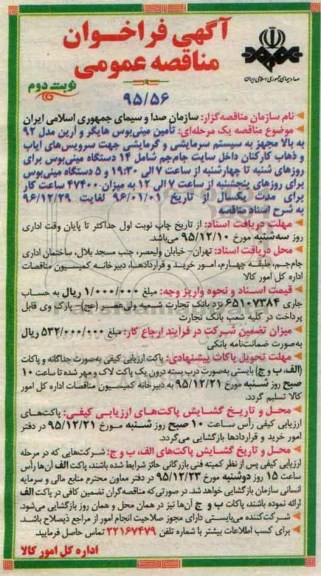 آگهی فراخوان
مناقصه عمومی
نوبت دوم
صدا و سیمای جمهوری اسلامی ایران
۹۵/۵۶
نام سازمان مناقصه‌گزار: سازمان صدا و سیمای جمهوری اسلامی ایران
موضوع مناقصه یک مرحله‌ای: تأمین مینی‌بوس هایگر و آرین مدل ۹۲
به بالا مجهز به سیستم سرمایشی و گرمایشی جهت سرویس‌های ایاب
و ذهاب کارکنان داخل سایت جام‌جم شامل ۱۴ دستگاه مینی‌بوس برای
روزهای شنبه تا چهارشنبه از ساعت ۷ الی ۱۹:۳۰ و ۵ دستگاه مینی‌بوس
برای روزهای پنجشنبه از ساعت ۷ الی ۱۲ به میزان ۴۷۴۰۰ ساعت کار
برای مدت یکسال از تاریخ ۹۶/۰۱/۰۱ لغایت ۹۶/۱۲/۲۹
به شرح اسناد مناقصه
مهلت دریافت اسناد: از تاریخ چاپ نوبت اول حداکثر تا پایان وقت اداری
روز سه‌شنبه مورخ ۹۵/۱۲/۱۰ می‌باشد.
محل دریافت اسناد: تهران- خیابان ولیعصر، جنب مسجد بلال، ساختمان اداری
جام‌جم، طبقه چهارم، امور خرید و قراردادها، دبیرخانه کمیسیون مناقصات
اداره کل امور کالا
قیمت اسناد و نحوه واریز وجه: مبلغ ۱/۰۰۰/۰۰۰ ریال به حساب
جاری ۶۵۱۰۷۳۸۴ نزد بانک تجارت شعبه ولی‌عصر (عج)- پارک وی قابل
پرداخت در کلیه شعب بانک تجارت
میزان تضمین شرکت در فرآیند ارجاع کار: مبلغ ۵۳۲/۰۰۰/۰۰۰ ریال
به‌صورت ضمانت‌نامه بانکی
مهلت تحویل پاکات پیشنهادی: پاکت ارزیابی کیفی به‌صورت جداگانه و پاکات
(الف، ب و ج) بایستی به‌صورت درب بسته درون یک پاکت لاک و مهر شده تا ساعت ۱۰
صبح روز شنبه مورخ ۹۵/۱۲/۲۱ به دبیرخانه کمیسیون مناقصات اداره کل امور
کالا تسلیم گردد.
محل و تاریخ گشایش پاکت‌های ارزیابی کیفی: پاکت‌های
ارزیابی کیفی رأس ساعت ۱۰ صبح روز شنبه مورخ ۹۵/۱۲/۲۱ در دفتر
امور خرید و قراردادها بازگشایی می‌گردد.
محل و تاریخ گشایش پاکت‌های الف، ب و ج: شرکت‌هایی که در مرحله
ارزیابی کیفی پس از نظر کمیته فنی بازرگانی حائز شرایط شده باشند، پاکت الف آن‌ها رأس
ساعت ۱۵ روز دوشنبه مورخ ۹۵/۱۲/۲۳ در دفتر معاون محترم منابع مالی و سرمایه
انسانی سازمان بازگشایی خواهد شد. در صورتی که مناقصه‌گران تضمین کافی در پاکت الف
ارائه نموده باشند پاکات ب و ج آن‌ها نیز در همان محل و همان روز بازگشایی می‌شود.
شرکت‌کننده می‌بایستی دارای مجوز صلاحیت انجام امور از مراجع ذیصلاح باشد.
برای کسب اطلاعات بیشتر با شماره تلفن ۲۲۱۶۷۴۷۹ تماس حاصل فرمایید
اداره کل امور کالا